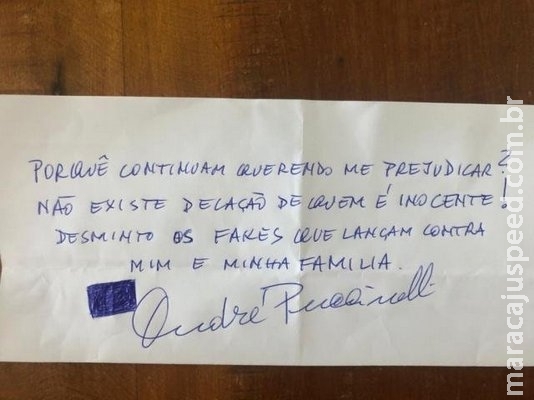 PORQUÊ CONTINUAM QUERENDO ME PREJUDICAR?
NÃO EXISTE DELAÇÃO DE QUEM É INOCENTE!
DESMINTO OS FAKES QUE LANÇAM CONTRA
MIM E MINHA FAMILIA.
André Puccinelli
maracajuspeed.com.br